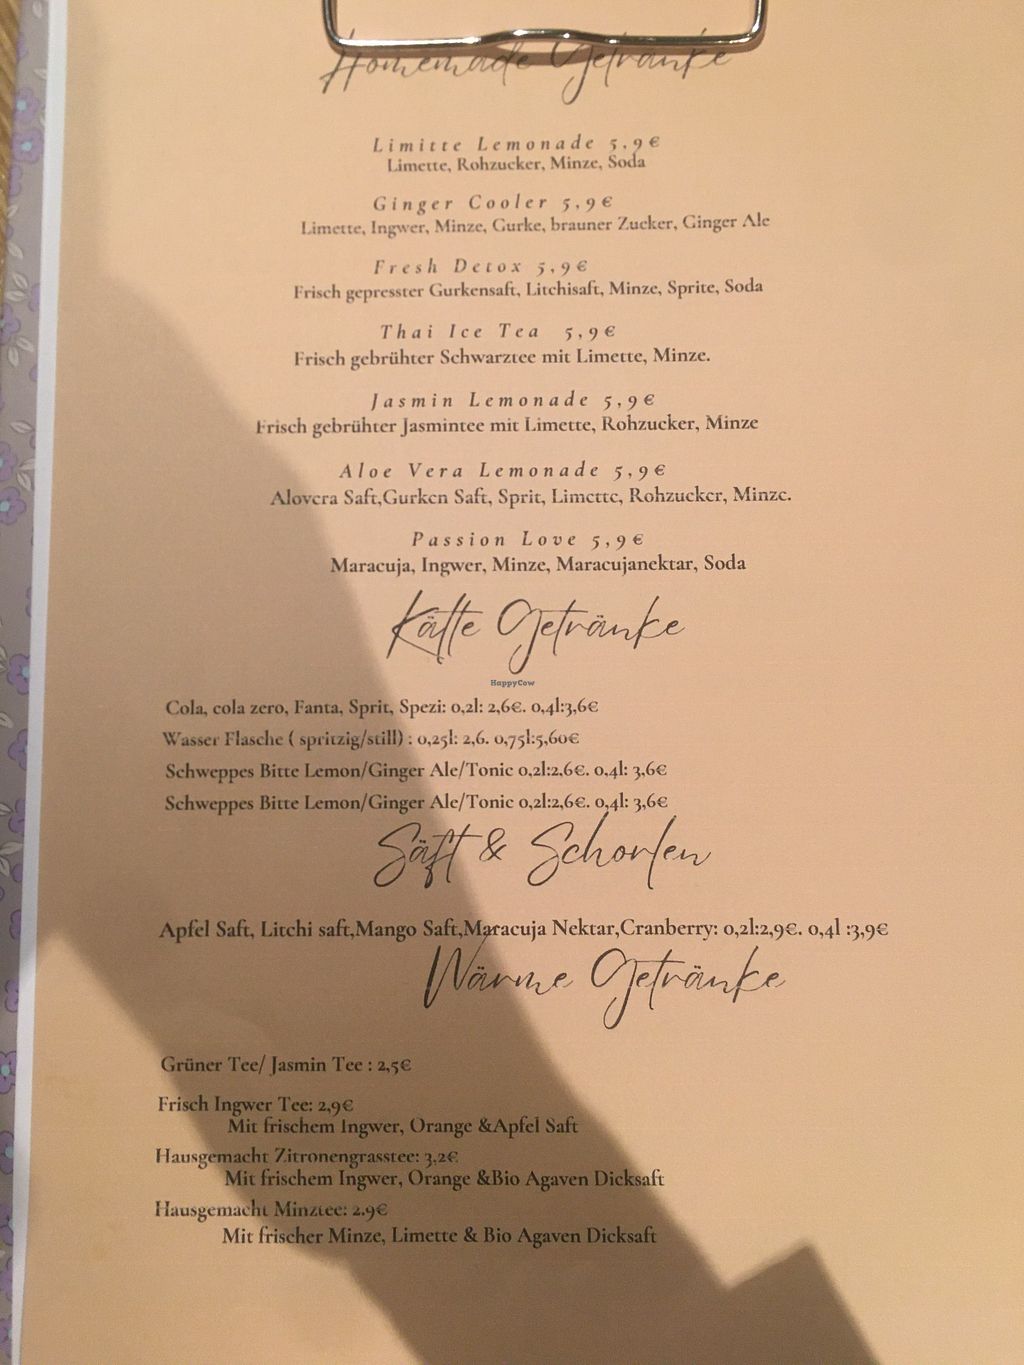 Homemade Getränke
Limitte Lemonade 5,9€
Limette, Rohzucker, Minze, Soda
Ginger Cooler 5,9€
Limette, Ingwer, Minze, Gurke, brauner Zucker, Ginger Ale
Fresh Detox 5,9€
Frisch gepresster Gurkensaft, Litchisaft, Minze, Sprite, Soda
Thai Ice Tea 5,9€
Frisch gebrühter Schwarztee mit Limette, Minze.
Jasmin Lemonade 5,9€
Frisch gebrühter Jasmintee mit Limette, Rohzucker, Minze
Aloe Vera Lemonade 5,9€
Alovera Saft,Gurken Saft, Sprit, Limette, Rohzucker, Minze.
Passion Love 5,9€
Maracuja, Ingwer, Minze, Maracujanektar, Soda
Kälte Getränke
HappyCow
Cola, cola zero, Fanta, Sprit, Spezi: 0,2l: 2,6€. 0,4l:3,6€
Wasser Flasche ( spritzig/still) : 0,25l: 2,6. 0,75l:5,60€
Schweppes Bitte Lemon/Ginger Ale/Tonic 0,2l:2,6€. 0,4l: 3,6€
Schweppes Bitte Lemon/Ginger Ale/Tonic 0,2l:2,6€. 0,4l: 3,6€
Säft & Schorlen
Apfel Saft, Litchi saft,Mango Saft,Maracuja Nektar,Cranberry: 0,2l:2,9€. 0,4l :3,9€
Wärme Getränke
Grüner Tee/ Jasmin Tee : 2,5€
Frisch Ingwer Tee: 2,9€
Mit frischem Ingwer, Orange &Apfel Saft
Hausgemacht Zitronengrasstee: 3,2€
Mit frischem Ingwer, Orange &Bio Agaven Dicksaft
Hausgemacht Minztee: 2.9€
Mit frischer Minze, Limette & Bio Agaven Dicksaft